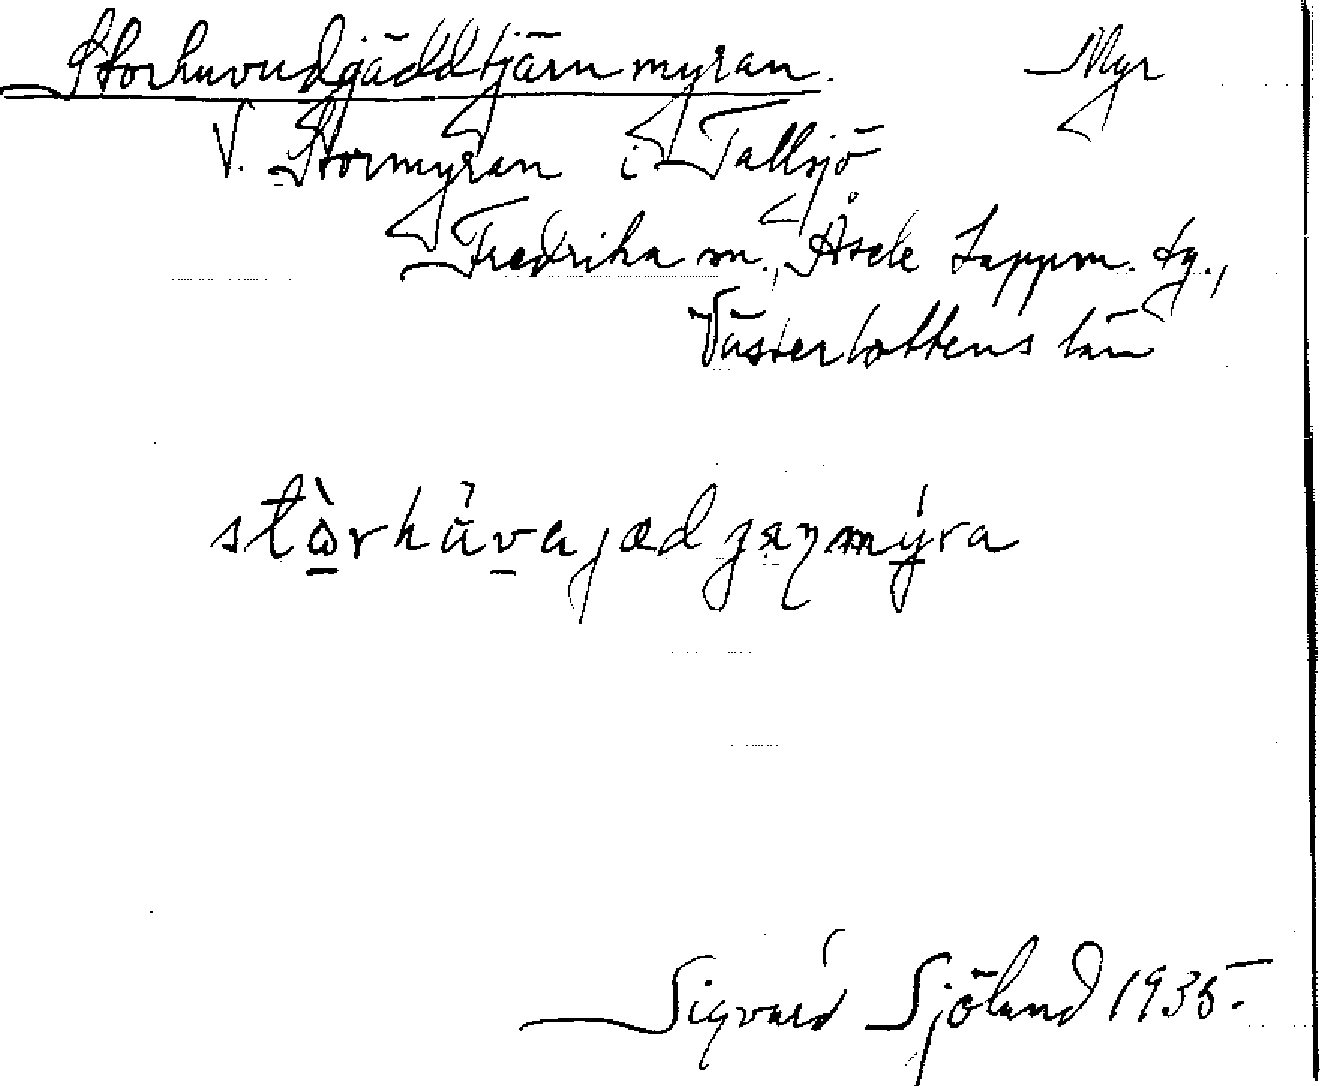 Storhuvudgäddtjärnmyran. Myr
V. Stormyran i Tallsjö
Fredrika sn., Åsele Lappm. tg.,
Västerbottens län
stòrhǜvajædjæɳmýra
Sigvard Sjölund 1935.